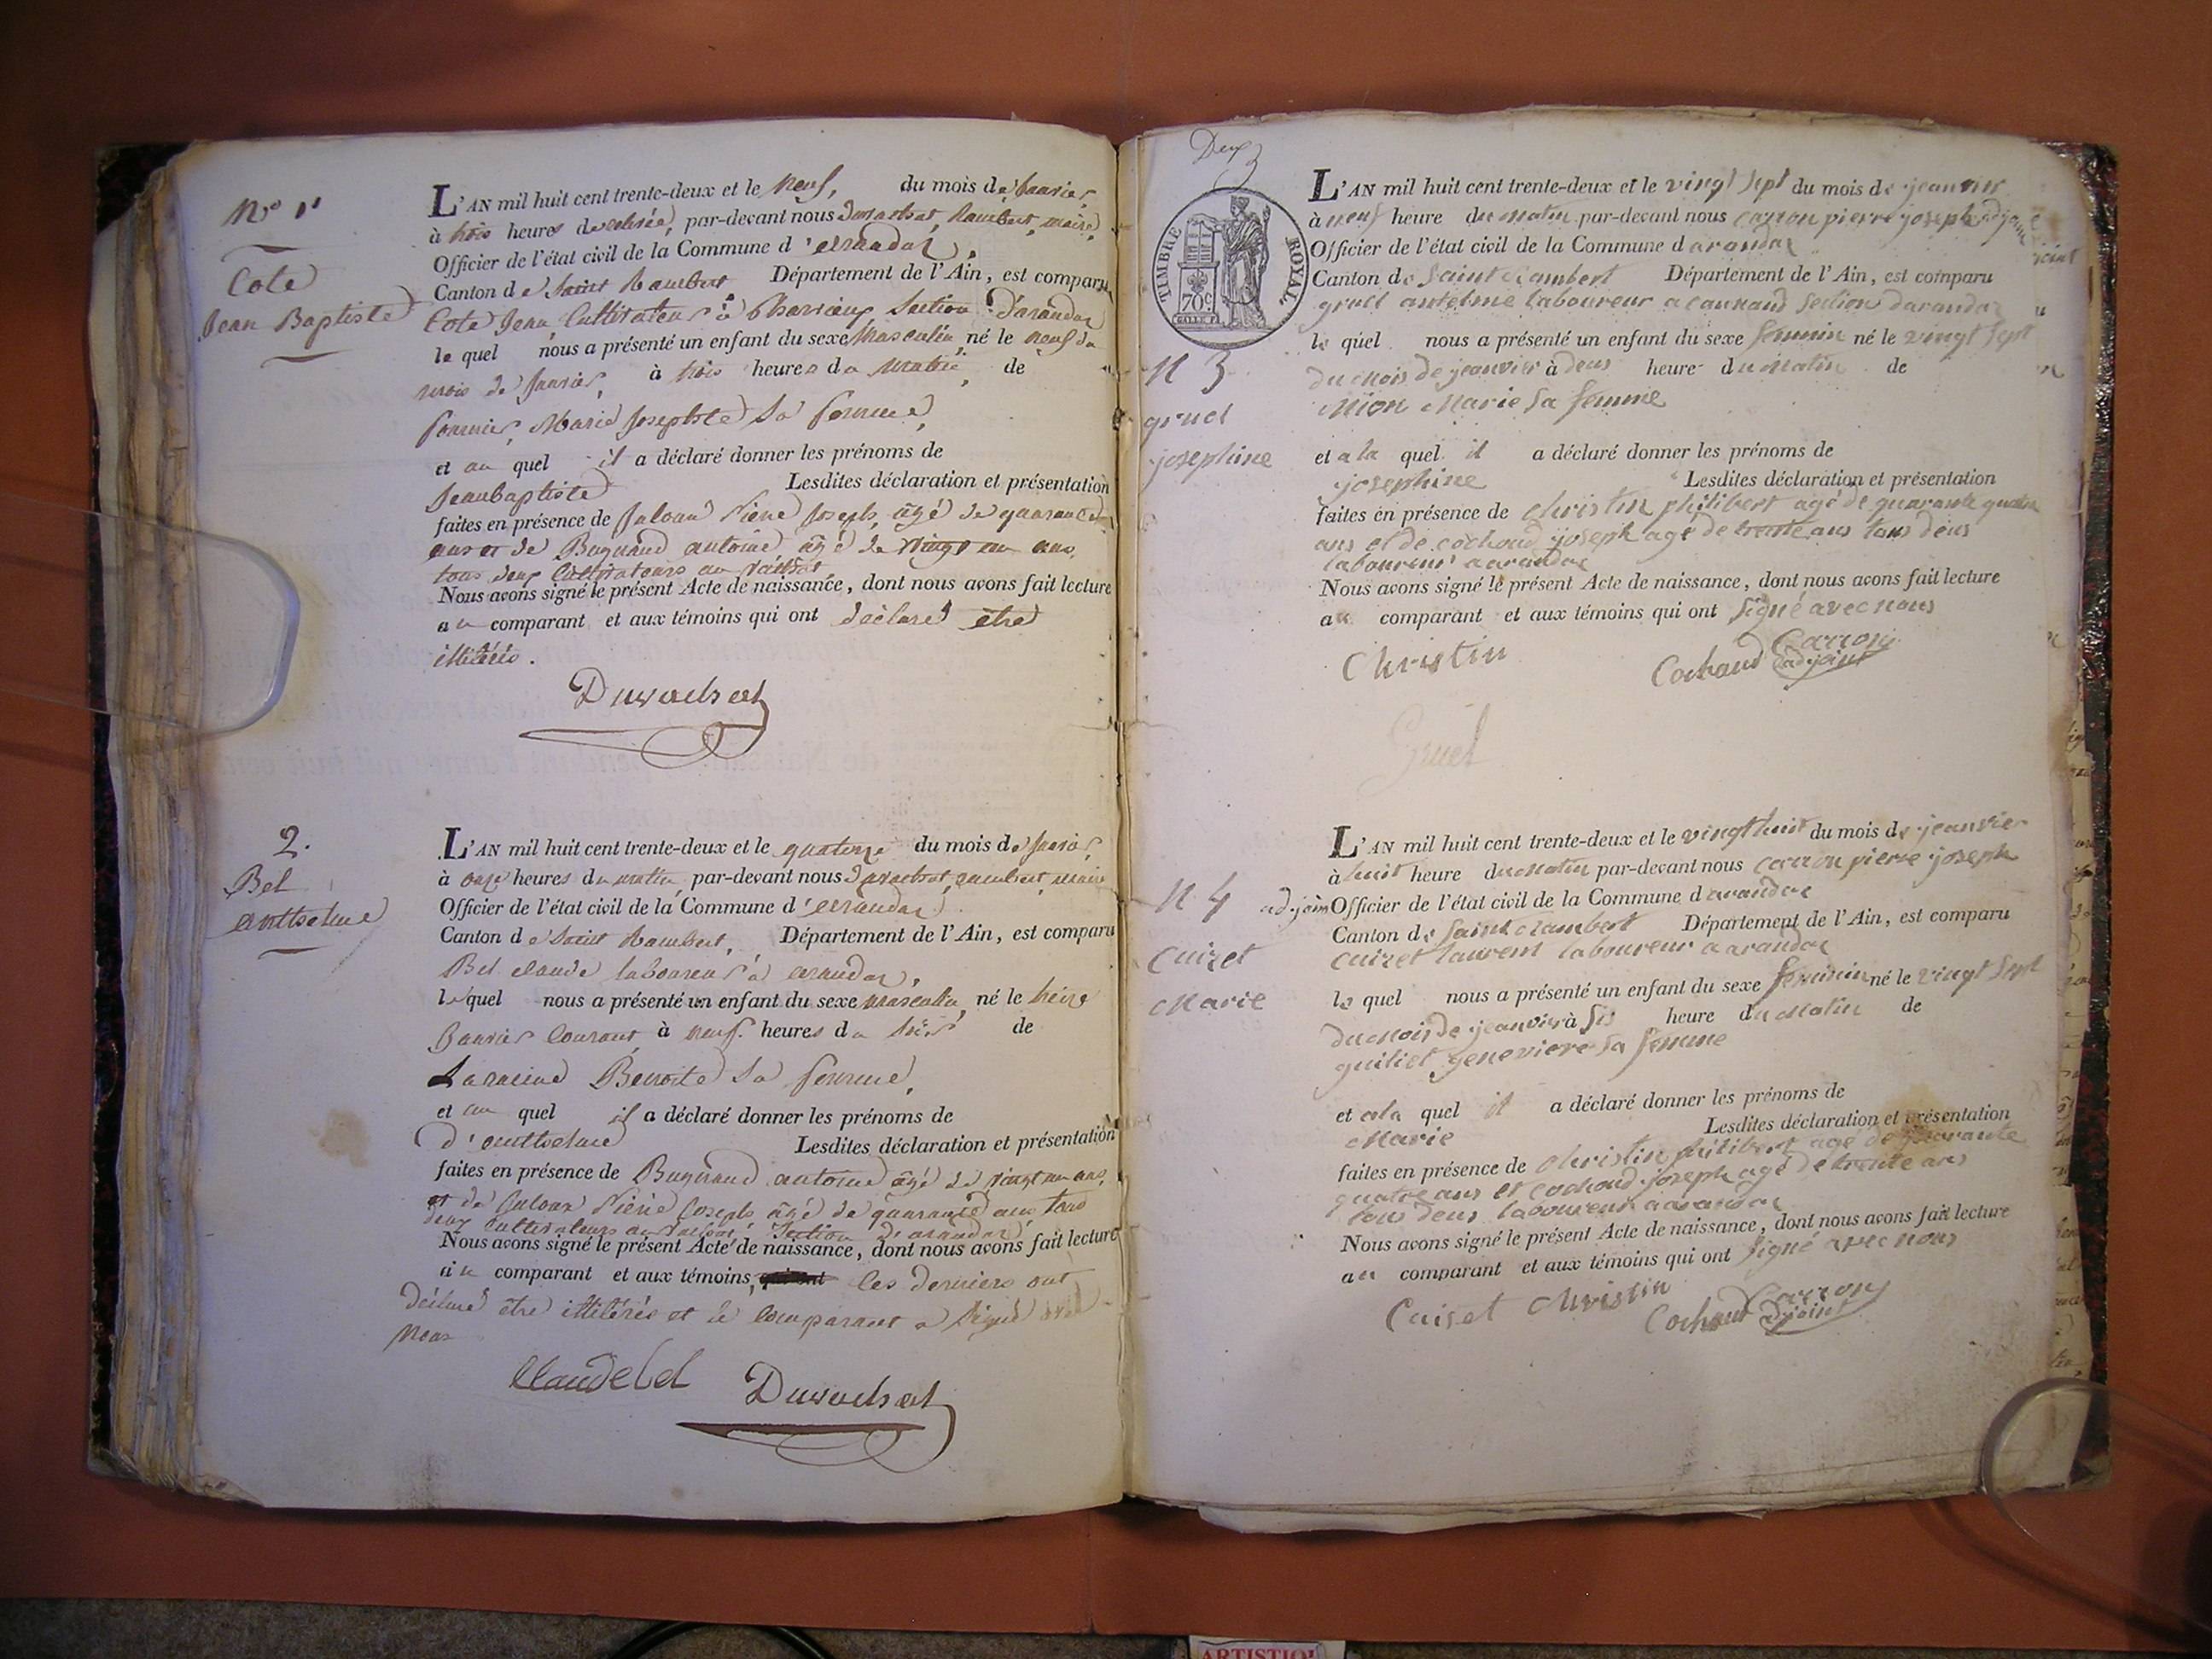 N.º 1er
Cote
Jean Baptiste
L'AN mil huit cent trente-deux et le neuf, du mois de janvier,
à trois heures de relevée, par-devant nous Duvachat, Rambert, maire,
Officier de l'état civil de la Commune d'arandas,
Canton de Saint Rambert Département de l'Ain, est comparu
Cote Jean, Cultivateur à Section d'arandas
le quel nous a présenté un enfant du sexe Masculin, né le neuf du
mois de janvier, à trois heures du matin, de
fournier, Marie Josephte Sa femme,
et au quel il a déclaré donner les prénoms de
Jeanbaptiste Lesdites déclaration et présentation
faites en présence de Juloux Piérre Joseph, âgé de quarante
ans et de Bugnaud antoine âgé de vingt un ans,
tous deux Cultivateurs au
Nous avons signé le présent Acte de naissance, dont nous avons fait lecture
au comparant et aux témoins qui ont déclaré être
illitérés.
Duvachat
2.
Bel
anthelme
L'AN mil huit cent trente-deux et le quatorze du mois de janvier,
à onze heures du matin, par-devant nous Duvachat, rambert, maire
Officier de l'état civil de la Commune d'arandas
Canton de Saint Rambert, Département de l'Ain, est comparu
Bel claude laboureur à arandas,
le quel nous a présenté un enfant du sexe masculin, né le treize
janvier courant, à neuf heures du soir de
Laracine Bénoite Sa femme,
et au quel il a déclaré donner les prénoms de
d'anthelme Lesdites déclaration et présentation
faites en présence de Bugnaud antoine âgé de vingt un ans,
et de Juloux Piérre Joseph âgé de quarante ans tous
deux Cultivateurs au Section d'arandas
Nous avons signé le présent Acte de naissance, dont nous avons fait lecture
au comparant et aux témoins, les derniers ont
déclaré être illitérés et le comparant a signé avec
nous
Claude bel Duvachat
Deux
TIMBRE ROYAL
70c
N 3
gruel
josephine
L'AN mil huit cent trente-deux et le vingt sept du mois de jeanvier
à neuf heure du matin par-devant nous carron pierre joseph adjoint
Officier de l'état civil de la Commune d arandas
Canton de Saint rambert Département de l'Ain, est comparu
gruel antelme laboureur a Section darandas
le quel nous a présenté un enfant du sexe feminin né le vingt sept
du mois de jeanvier à deus heure du matin de
Mion Marie sa femme
et a la quel il a déclaré donner les prénoms de
josephine Lesdites déclaration et présentation
faites en présence de christin philibert agé de quarante quatre
ans et de cochoud joseph agé de trente ans tous deus
laboureur a arandas
Nous avons signé le présent Acte de naissance, dont nous avons fait lecture
au comparant et aux témoins qui ont signé avec nous
Christin Cochoud Carron
adjoint
Gruel
N 4
cuizet
Marie
L'AN mil huit cent trente-deux et le vingt huit du mois de jeanvier
à huit heure du matin par-devant nous carron pierre joseph
adjoint Officier de l'état civil de la Commune d arandas
Canton de Saint rambert Département de l'Ain, est comparu
cuizet laurent laboureur a arandas
le quel nous a présenté un enfant du sexe feminin né le vingt sept
du mois de jeanvier à sis heure du matin de
genevieve sa femme
et a la quel il a déclaré donner les prénoms de
Marie Lesdites déclaration et présentation
faites en présence de christin philibert agé de quarante
quatre ans et cochoud joseph agé de trente ans
tous deus laboureur a arandas
Nous avons signé le présent Acte de naissance, dont nous avons fait lecture
au comparant et aux témoins qui ont signé avec nous
Cuiset christin Cochoud Carron
adjoint